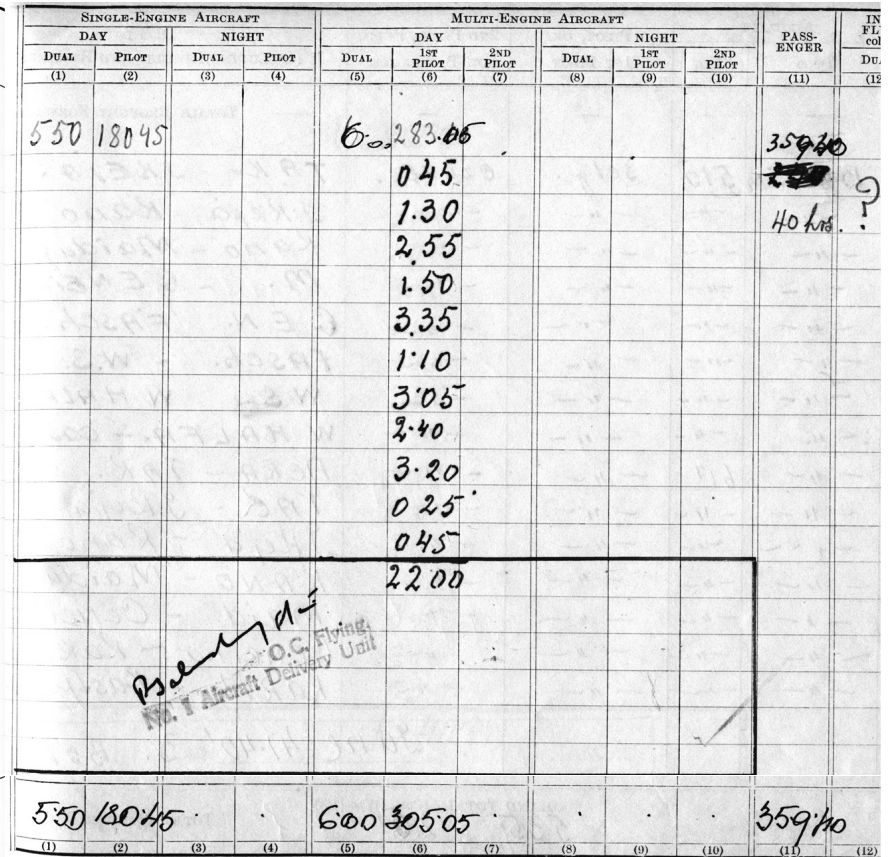 SINGLE-ENGINE AIRCRAFT MULTI-ENGINE AIRCRAFT IN
DAY NIGHT DAY NIGHT PASS-ENGER FL
DUAL PILOT DUAL PILOT DUAL 1ST PILOT 2ND PILOT DUAL 1ST PILOT 2ND PILOT DU
(1) (2) (3) (4) (5) (6) (7) (8) (9) (10) (11) (12
550 18045 6.00 283.05 359.40
045 ?
1.30 40 hrs. !
2.55
1.50
3.35
1.10
3.05
2.40
3.20
0 25
045
22 00
O.C. Flying,
No. 1 Aircraft Delivery Unit
550 180.45 600 305.05 359.40
(1) (2) (3) (4) (5) (6) (7) (8) (9) (10) (11) (12)